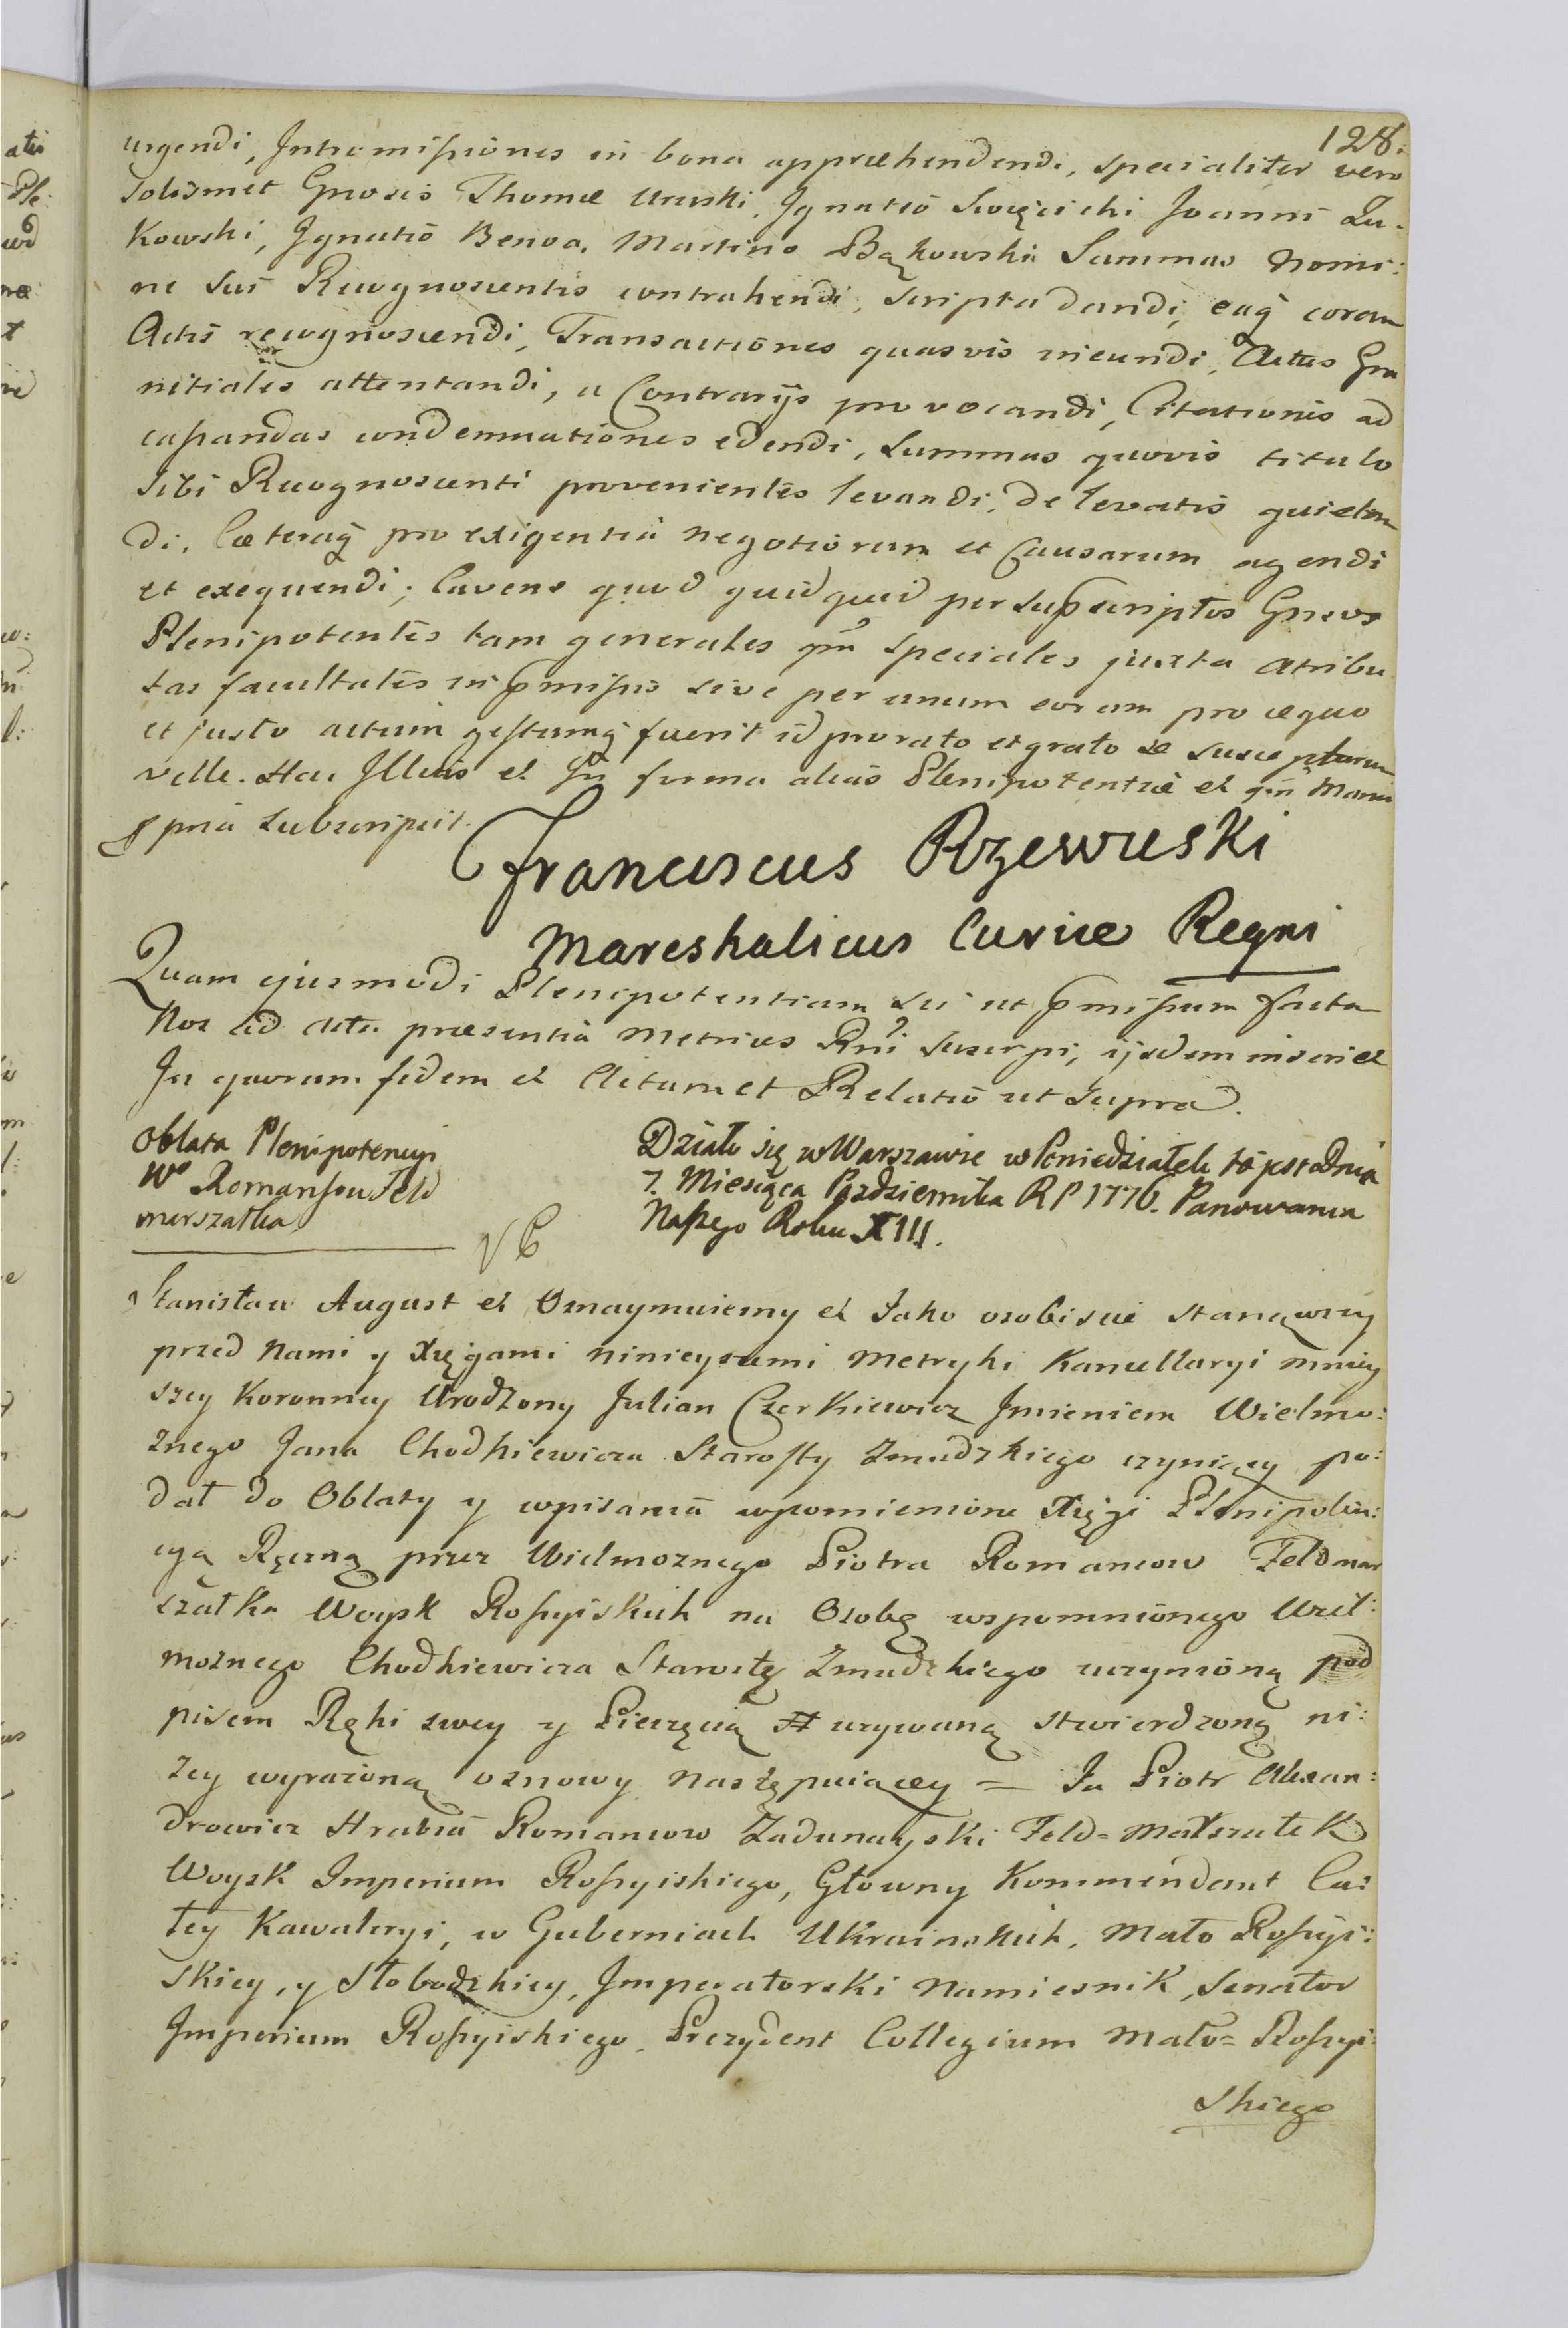 128.
urgendi, Intromissiones in bona appraehendendi, specialiter vero
solismet Gnosis Thomae Uruski, Ignatio Swięcicki Joanni Zu-
kowski, Ignatio Benoa, Martino Bąkowski Summas Nomi:
ne Sui Recognoscentis contrahendi, scripta dandi, eaq coram
Actis recognoscendi, Transactiones quasvis ineundi, Actus Gra
nitiales attentandi, a Contrarijs provocandi, Citationes ad
cassandas condemnationes edendi, Summas quovis titulo
sibi Recognoscenti provenientes levandi, de levatis quietan
di, Caeteraq pro exigentia negotiorum et Causarum agendi
et exequendi; Cavens quod quidquid per supscriptos Gneros
Plenipotentes tam generales qm speciales juxta atribu
tas facultates in pmissis sive per unum eorum pro aequo
et justo actum gestumq fuerit id pro rato et grato se suscepturum
velle. Hac Illius et In forma alias Plenipotentiae et qm Manu
ppria Subscripsit.
Franciscus Rzewuski
Mareshalicus Curiae Regni
Quam ejusmodi Plenipotentiam sui ut pmissum facta
Nos ad Acta praesentia Metrices Rni suscepi, ijsdem inseri et
In quorum fidem et Actum et Relatio ut supra.
Oblata Plenipotencyi
Wo Romansou Feld
marszałka
Działo się w Warszawie w Poniedziałek to jest Dnia
7. Miesiąca Pazdziernika R P 1776. Panowania
Naszego Roku XIII.
Stanisław August et Oznaymuiemy et Jako osobiscie stanąwszy
przed Nami y Xięgami ninieyszemi Metryki Kancellaryi mniey
szey Koronney Urodzony Julian Czerkiewicz Imieniem Wielmo:
znego Jana Chodkiewicza Starosty Zmudzkiego czyniący po:
dał do Oblaty y wpisania wpomienione Xięgi Plenipoten:
cyą Ręczną przez Wielmoznego Piotra Romancow Feldmar
szałka Woysk Rossyiskich na Osobę wspomnionego Wiel:
moznego Chodkiewicza Starostę Zmudzkiego uczynioną pod
pisem Ręki swey y Pieczęcią uzywaną stwierdzoną ni:
zey wyrazoną osnowy następuiącey = Ja Piotr Alexan:
drowicz Hrabia Romancow Zadunayski Feld-Marszałek
Woysk Imperium Rossyiskiego, Głowny Kommendant Ca:
łey Kawaleryi, w Guberniach Ukrainskich, Mało Rossyi:
skiey, y Słobodzkiey, Imperatorski Namiesnik, Senator
Imperium Rossyiskiego, Prezydent Collegium Mało-Rossyi
skiego